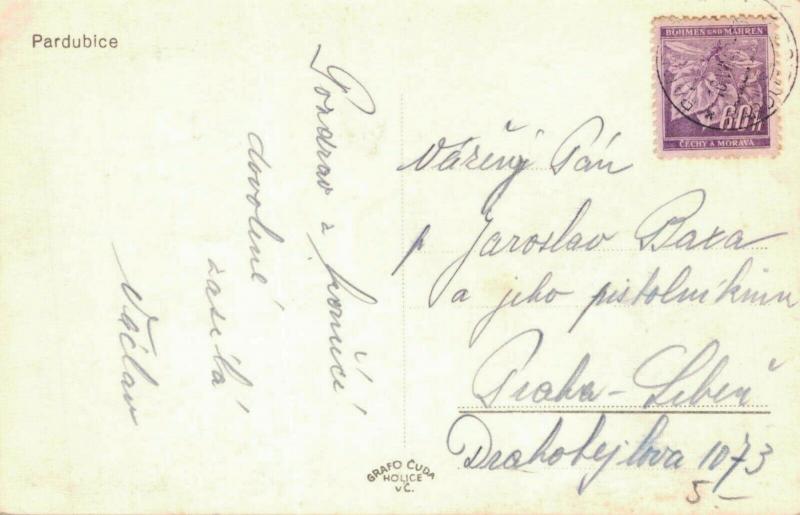 Pardubice
Pozdrav z končící
dovolené
zasílá
Václav
BÖHMEN UND MÄHREN
60h
ČECHY A MORAVA
Vážený Pán
p Jaroslav Baxa
a jeho pistolníkům
Praha-Libeň
Drahobejlova 1073
5.-
GRAFO ČUDA
HOLICE
v Č.